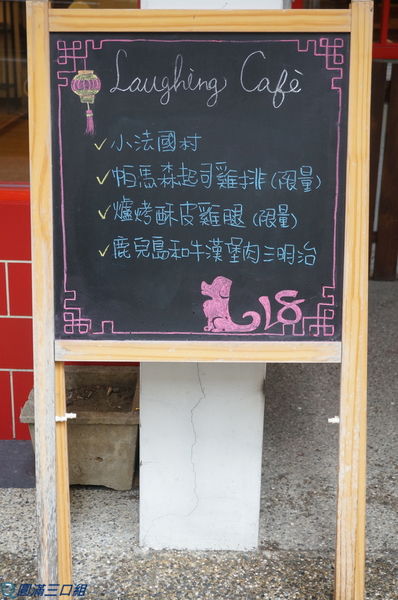 Laughing Café
小法國村
帕馬森起司雞排(限量)
爐烤酥皮雞腿(限量)
鹿兒島和牛漢堡肉三明治
2018
圓滿三口組